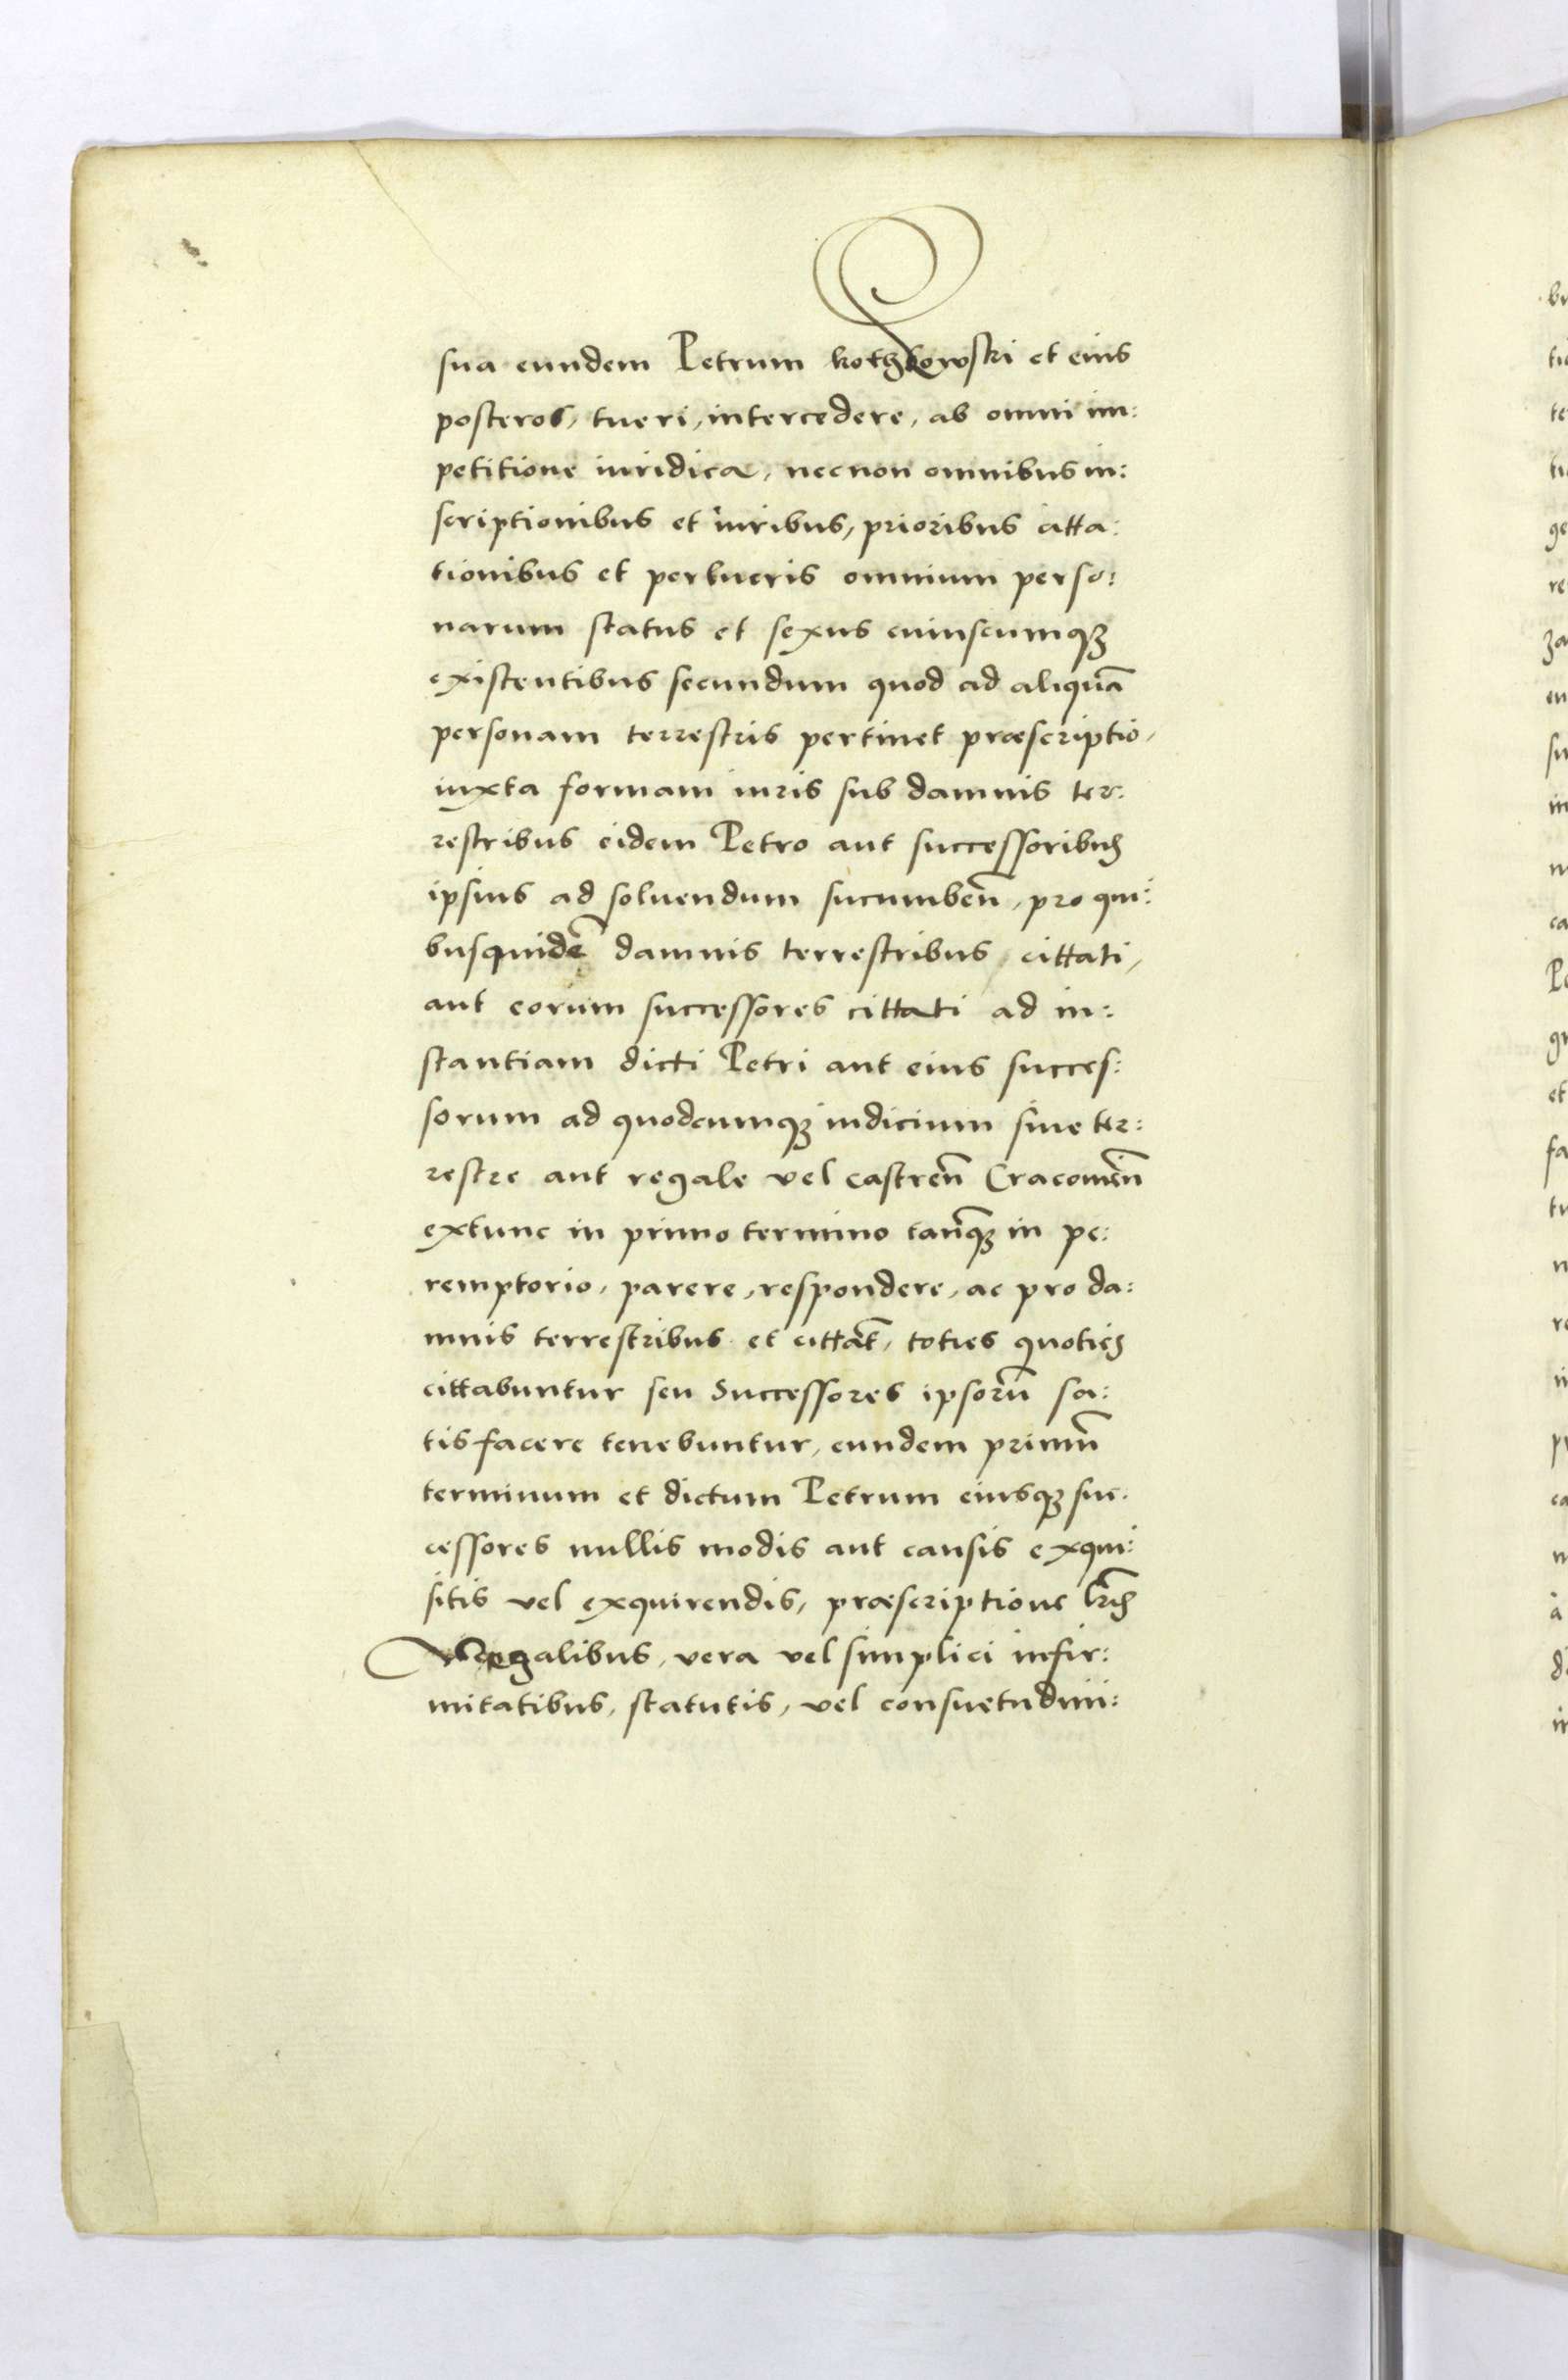 sua eundem Petrum kothkowski et eius
posteros, tueri, intercedere, ab omni im:
petitione iuridica, necnon omnibus in:
scriptionibus et iuribus, prioribus citta:
tionibus et perlucris omnium perso:
narum status et sexus cuiuscumqꝫ
existentibus secundum quod ad aliquā
personam terrestris pertinet præscriptio,
iuxta formam iuris sub damnis ter:
restribus eidem Petro aut successoribꝰ
ipsius ad soluendum sucumben̄, pro qui:
busquidē damnis terrestribus, cittati,
aut eorum successores cittati ad in:
stantiam dicti Petri aut eius succes:
sorum ad quodcumqꝫ iudicium siue ter:
restre aut regale vel castren̄ Cracouien̄
extunc in primo termino tanqꝫ in pe:
remptorio, parere, respondere, ac pro da:
mnis terrestribus et cittat̄, toties quoties
cittabuntur seu Successores ipsorū sa:
tisfacere tenebuntur, eundem primū
terminum et dictum Petrum eiusqꝫ suc:
cessores nullis modis aut causis exqui:
sitis vel exquirendis, præscriptione lr̄is
Regalibus, vera vel simplici infir:
mitatibus, statutis, vel consuetudini: